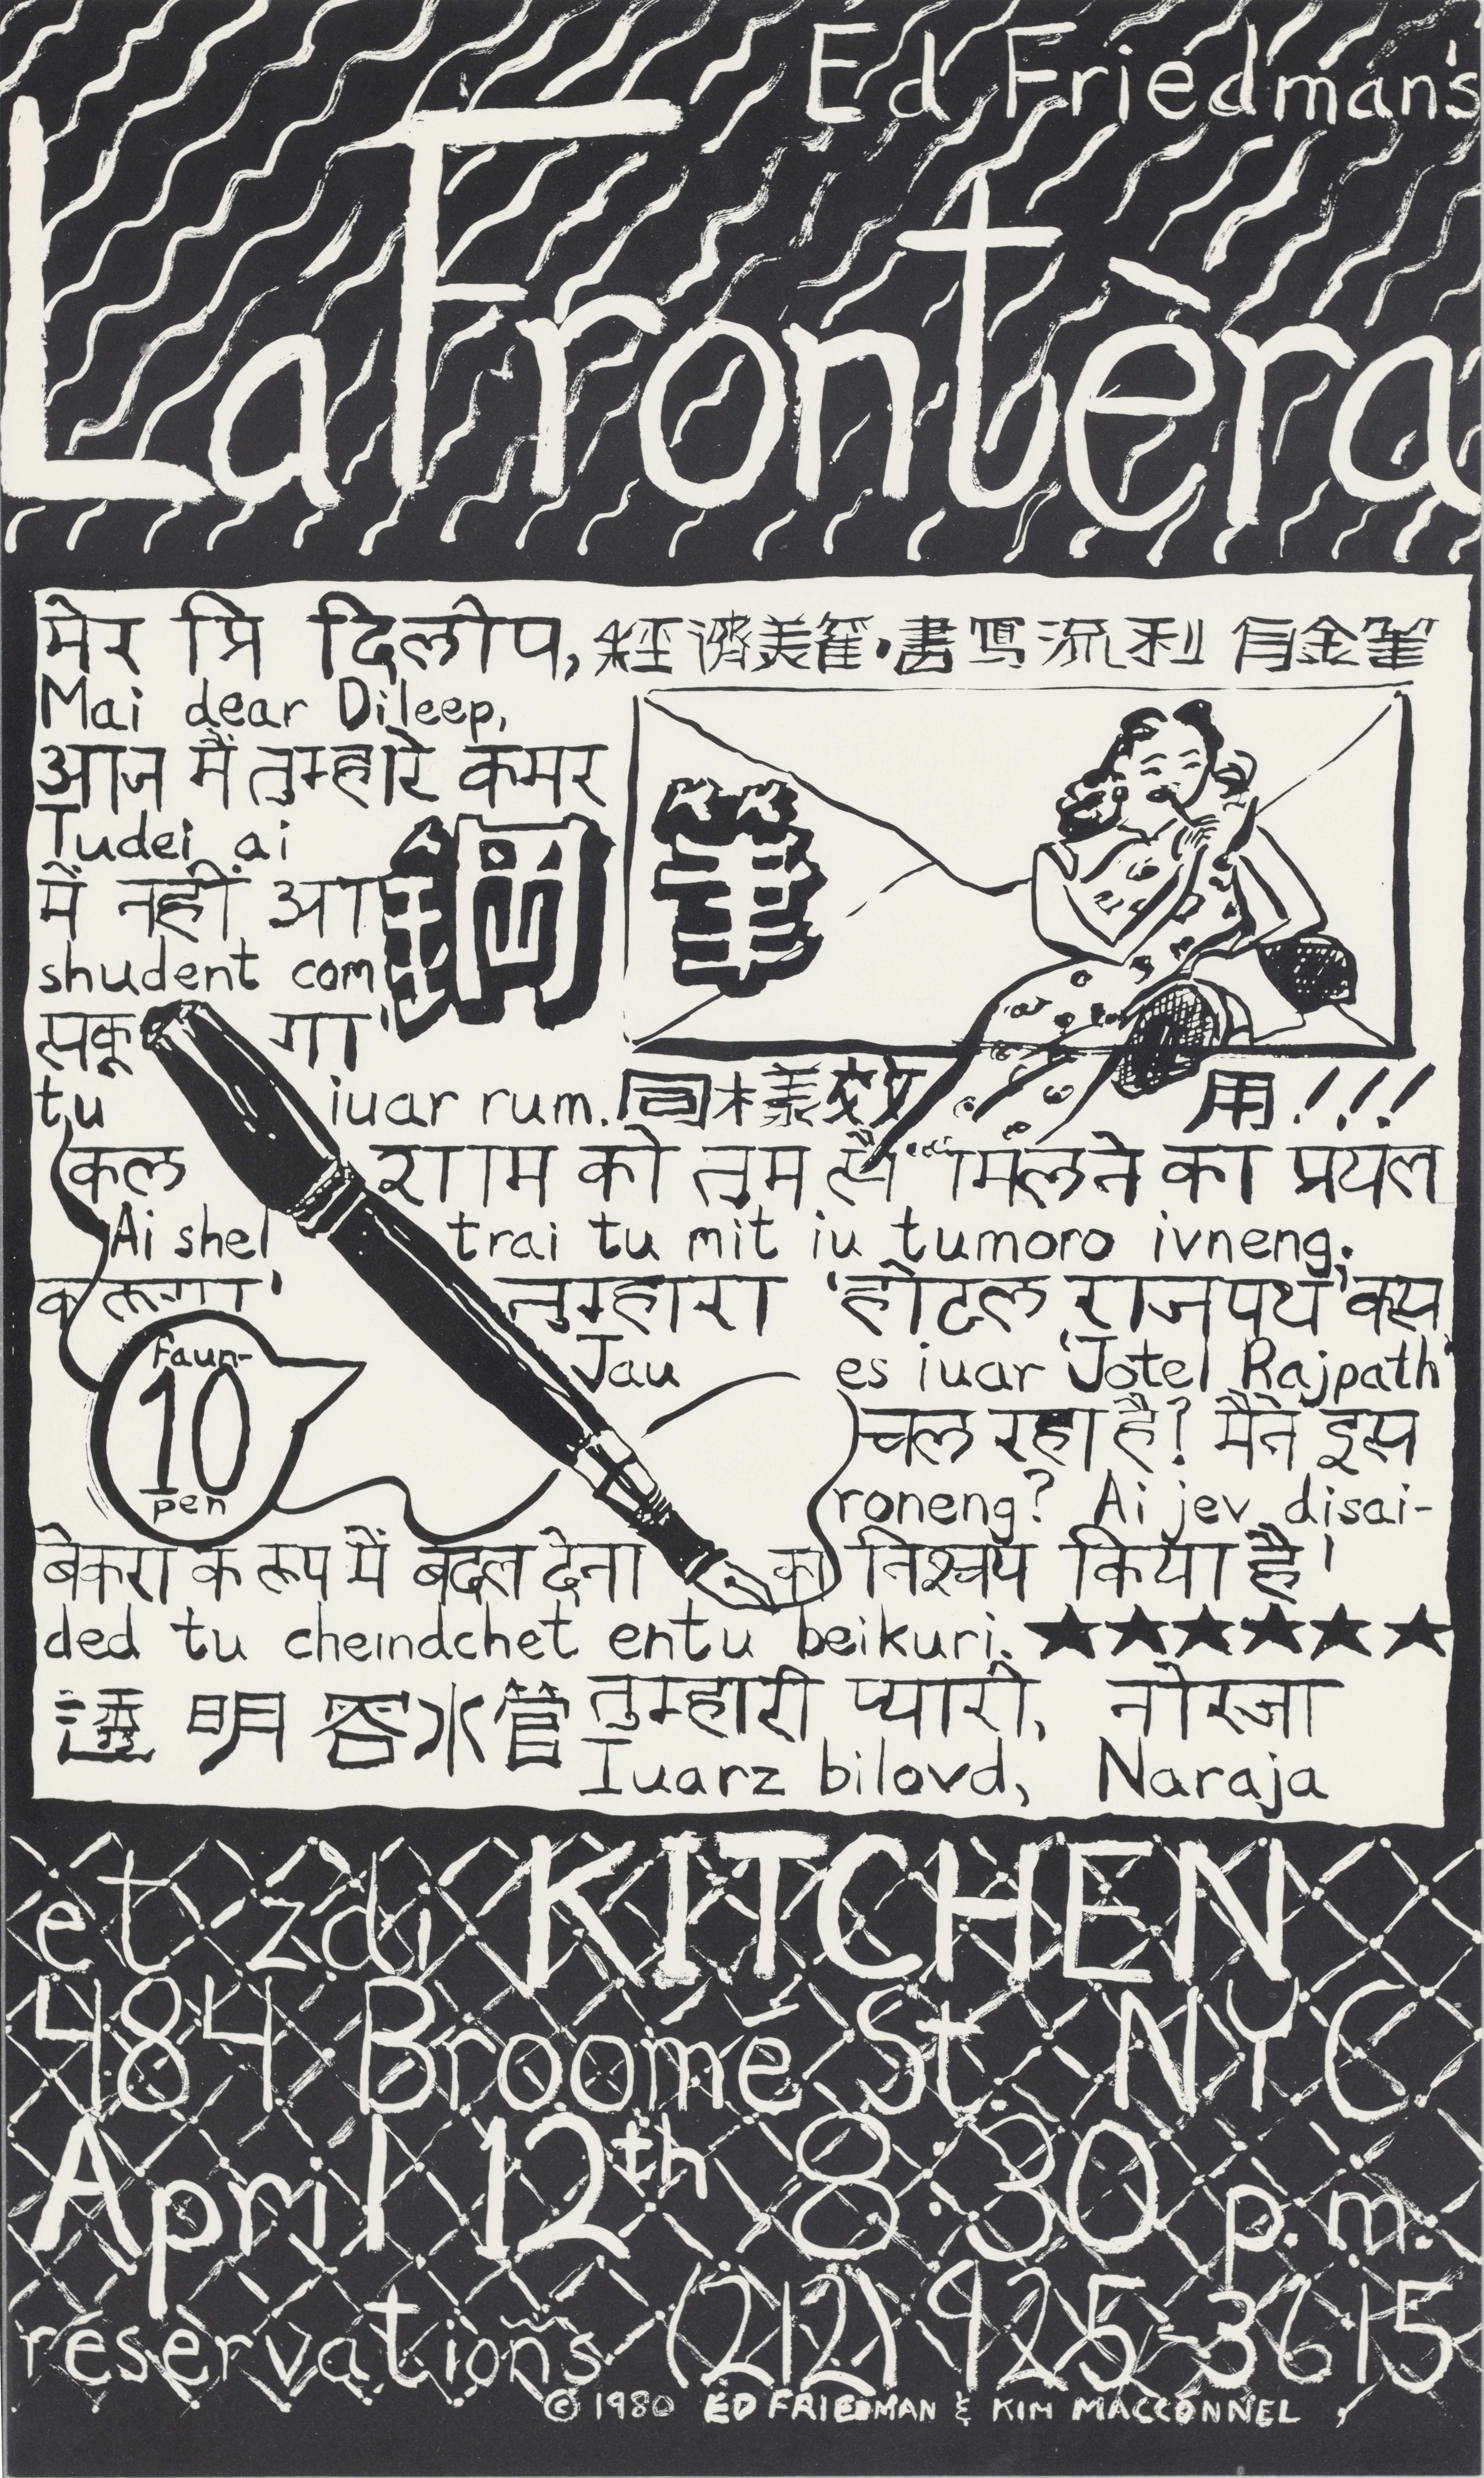 Ed Friedman's
La Frontèra
मेर प्रि दिलीप,
美 · 書寫流利 金筆
Mai dear Dileep,
आज मैं तुम्हारे कमर
Tudei ai
में नहीं आ
鋼筆
shudent com
गा'
tu iuar rum.
同樣 用!!!
कल को तुम मिलने का
Ai shel trai tu mit iu tumoro ivneng.
तुम्हारा 'होटल राजपथ'
Faun-
10
pen
Jau es iuar 'Jotel Rajpath'
चल रहा है? मैने इस
roneng? Ai jev disai-
बेकरी क रूप में बदल देना का निश्चय किया है।
ded tu cheindchet entu beikuri. ★★★★★★
透明容水管
तुम्हारी प्यारी,
Iuarz bilovd, Naraja
et zdi KITCHEN
484 Broome St NYC
April 12th 8:30 p.m.
reservations (212) 925-3615
© 1980 ED FRIEDMAN & KIM MACCONNEL